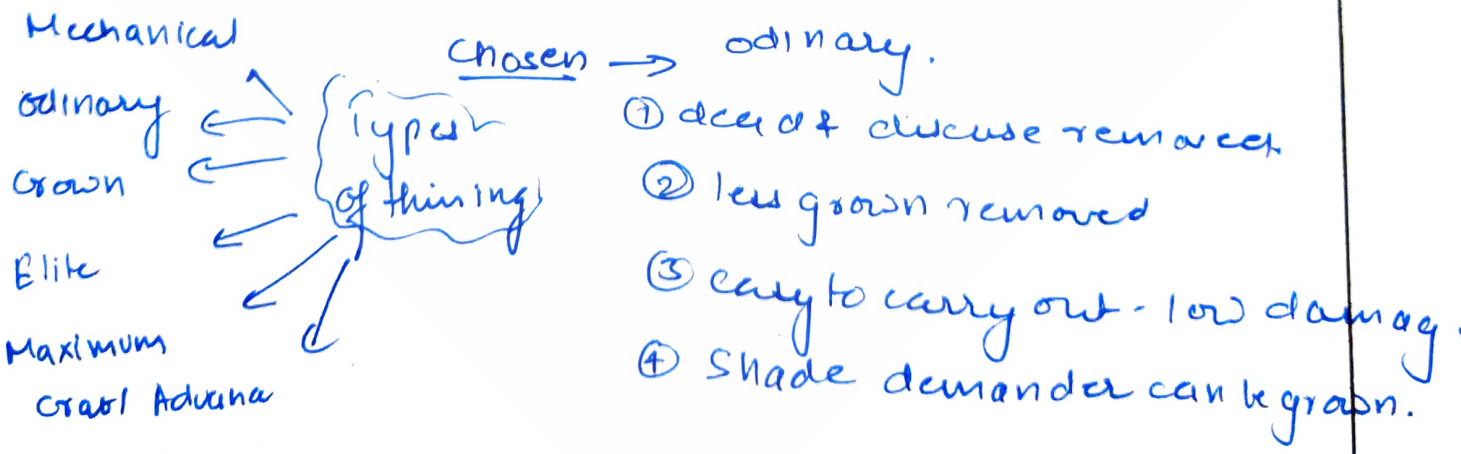 Mechanical
odinary
Crown
Elite
Maximum
Types
of thining
Chosen → odinary.
① dead & disease removed
② less grown removed
③ easy to carry out - low damag.
④ Shade demander can be grown.